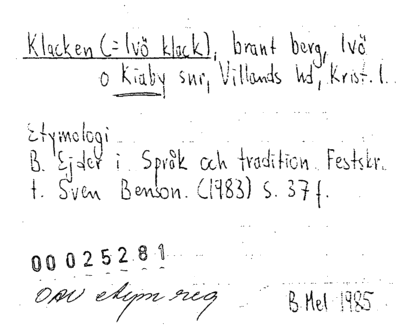 Klacken (= Ivö klack), brant berg, Ivö
o Kiaby snr, Villands hd, Krist. l.
Etymologi
B. Ejder i Språk och tradition. Festskr.
t. Sven Benson. (1983) s. 37 f.
00025281
OAU etym reg
B Mel 1985